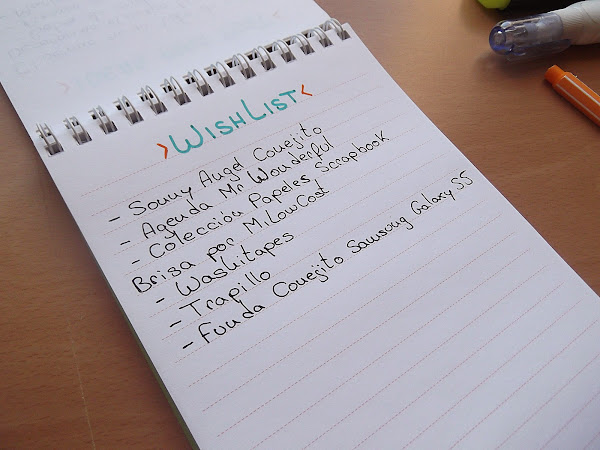 >WISHLIST<
- Sonny Angel Conejito
- Agenda Mr Wonderful
- Colección Papeles Scrapbook
Brisa por M.LowCost
- Washitapes
- Trapillo
- Funda Conejito Samsung Galaxy S5